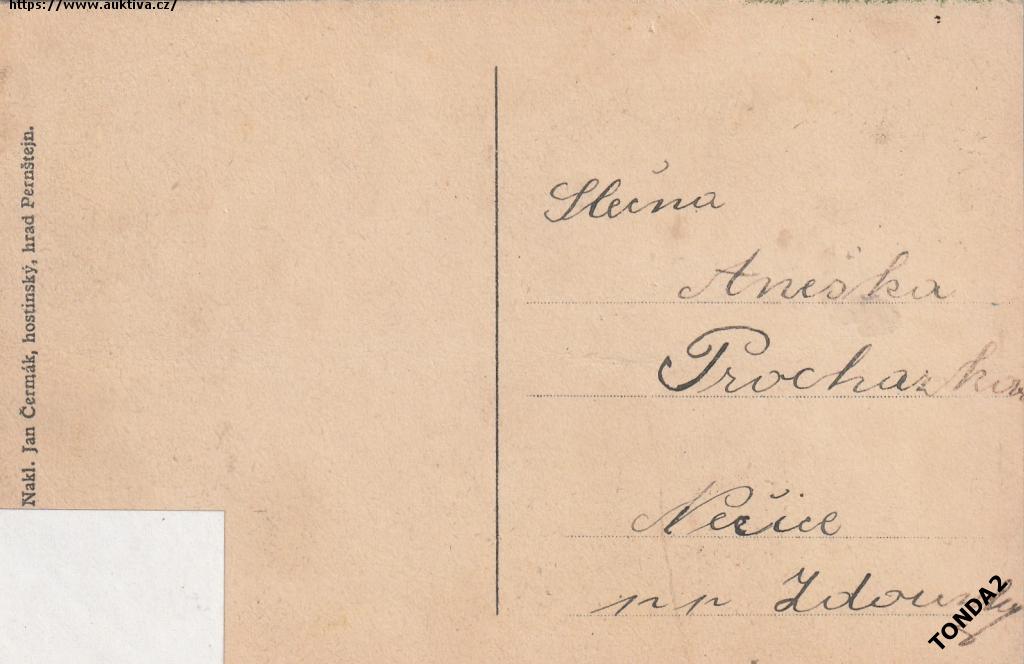 https://www.auktiva.cz/
Nakl. Jan Čermák, hostinský, hrad Pernštejn.
Slečna
Aneška
Prochazkova
Něčice
pp Zdounky
TONDA2